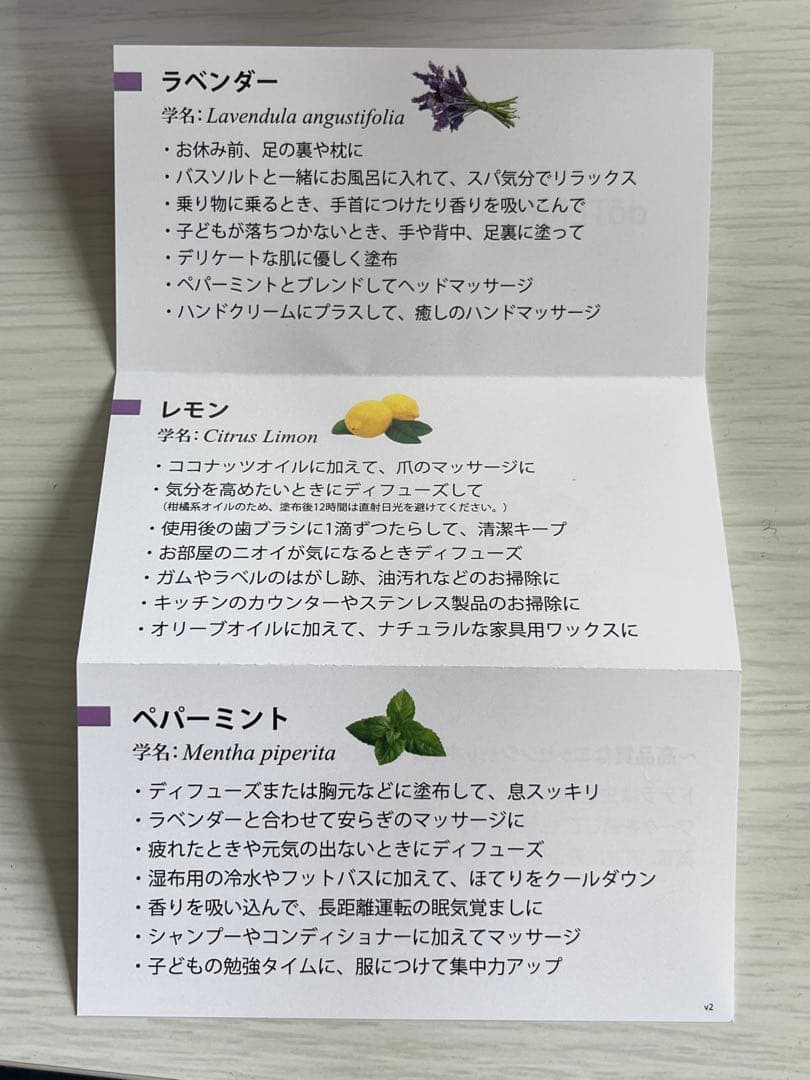 ラベンダー
学名：Lavendula angustifolia
・お休み前、足の裏や枕に
・バスソルトと一緒にお風呂に入れて、スパ気分でリラックス
・乗り物に乗るとき、手首につけたり香りを吸いこんで
・子どもが落ちつかないとき、手や背中、足裏に塗って
・デリケートな肌に優しく塗布
・ペパーミントとブレンドしてヘッドマッサージ
・ハンドクリームにプラスして、癒しのハンドマッサージ
レモン
学名：Citrus Limon
・ココナッツオイルに加えて、爪のマッサージに
・気分を高めたいときにディフューズして
（柑橘系オイルのため、塗布後12時間は直射日光を避けてください。）
・使用後の歯ブラシに1滴ずつたらして、清潔キープ
・お部屋のニオイが気になるときディフューズ
・ガムやラベルのはがし跡、油汚れなどのお掃除に
・キッチンのカウンターやステンレス製品のお掃除に
・オリーブオイルに加えて、ナチュラルな家具用ワックスに
ペパーミント
学名：Mentha piperita
・ディフューズまたは胸元などに塗布して、息スッキリ
・ラベンダーと合わせて安らぎのマッサージに
・疲れたときや元気の出ないときにディフューズ
・湿布用の冷水やフットバスに加えて、ほてりをクールダウン
・香りを吸い込んで、長距離運転の眠気覚ましに
・シャンプーやコンディショナーに加えてマッサージ
・子どもの勉強タイムに、服につけて集中力アップ
v2